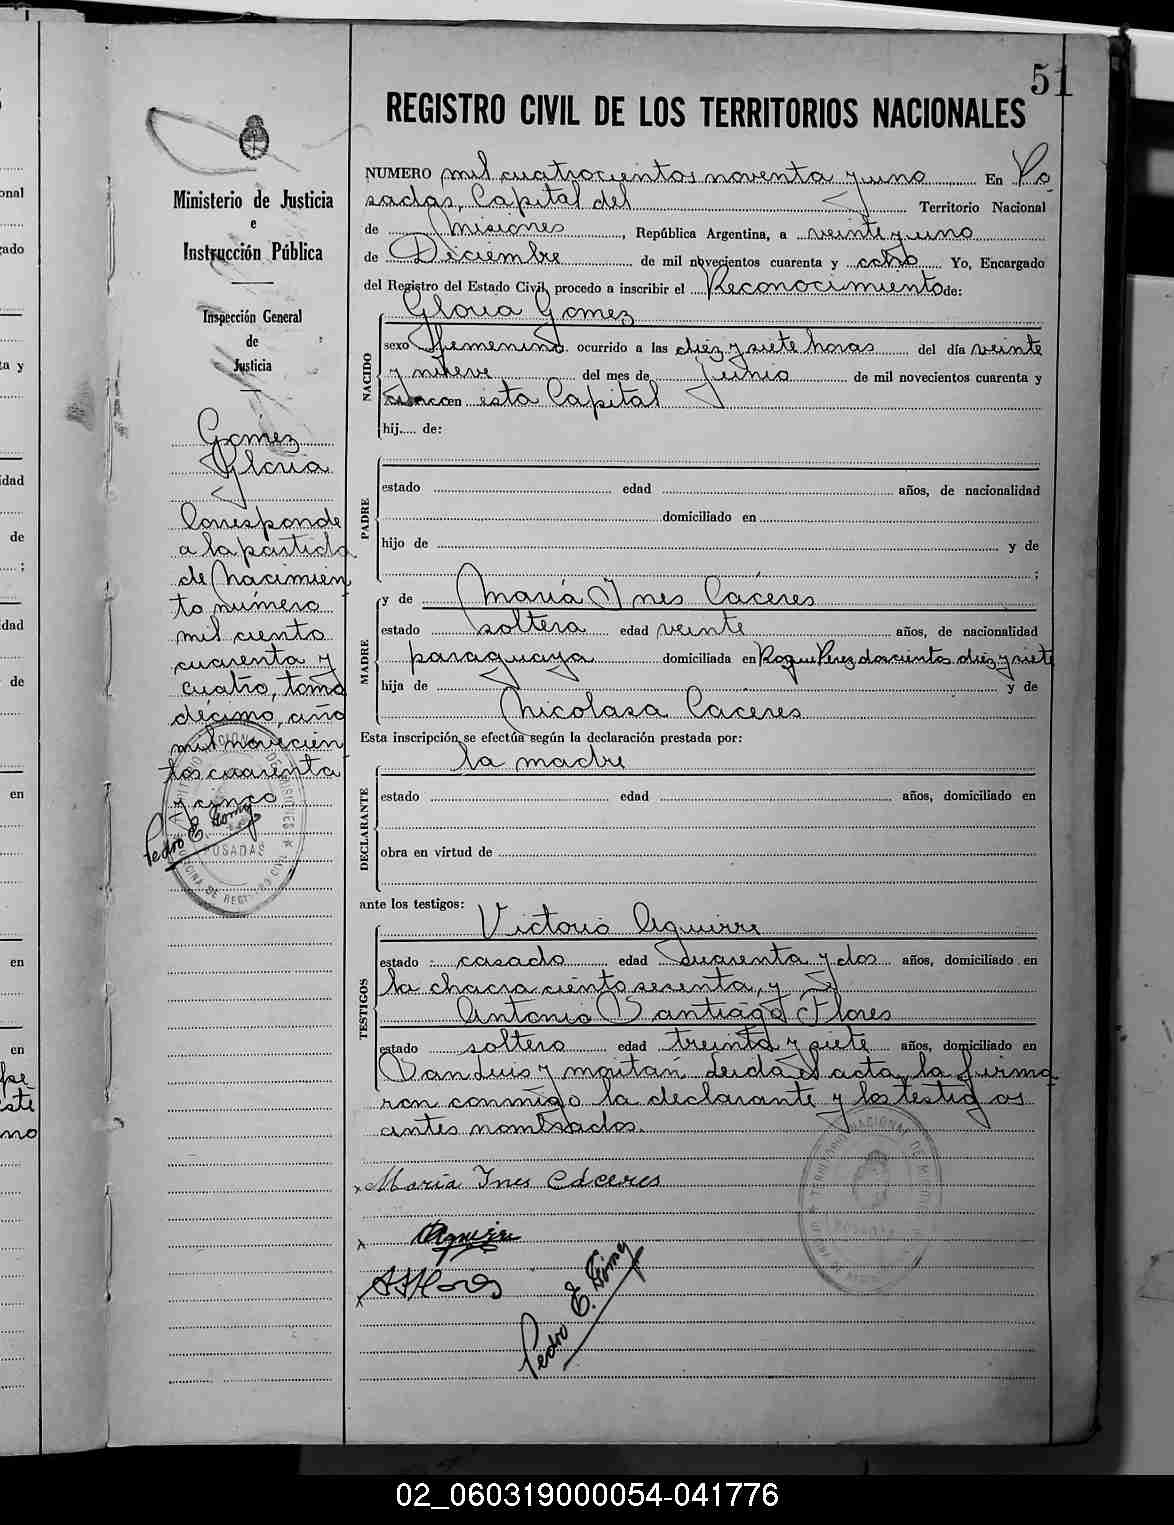 51
REGISTRO CIVIL DE LOS TERRITORIOS NACIONALES
Ministerio de Justicia
e
Instrucción Pública
Inspección General
de
Justicia
Gomez
Gloria
Corresponde
a la partida
de Nacimien
to número
mil ciento
cuarenta y
cuatro, tomo
décimo, año
mil novecien
tos cuarenta
y cinco
Pedro E. Gómez
POSADAS
NUMERO mil cuatrocientos noventa y uno En Po
sadas, Capital del Territorio Nacional
de Misiones, República Argentina, a veinte y uno
de Diciembre de mil novecientos cuarenta y ocho Yo, Encargado
del Registro del Estado Civil, procedo a inscribir el Reconocimiento de:
NACIDO
Gloria Gomez
sexo Femenino ocurrido a las diez y siete horas del día veinte
y nueve del mes de Junio de mil novecientos cuarenta y
cinco en esta Capital
hij.... de:
PADRE
estado edad años, de nacionalidad
domiciliado en
hijo de y de
;
MADRE
y de María Ines Caceres
estado soltera edad veinte años, de nacionalidad
paraguaya domiciliada en Roque Perez doscientos diez y siete
hija de y de
Nicolasa Caceres
Esta inscripción se efectúa según la declaración prestada por:
DECLARANTE
la madre
estado edad años, domiciliado en
obra en virtud de
ante los testigos:
TESTIGOS
Victorio Aguirre
estado casado edad cuarenta y dos años, domiciliado en
la chacra ciento sesenta, y
Antonio Santiago Flores
estado soltero edad treinta y siete años, domiciliado en
San Luis y Leida el acta, la firma
ron conmigo la declarante y los testigos
antes nombrados.
x Maria Ines Caceres
x Aguirre
x A S Flores
Pedro E. Gómez
02_060319000054-041776